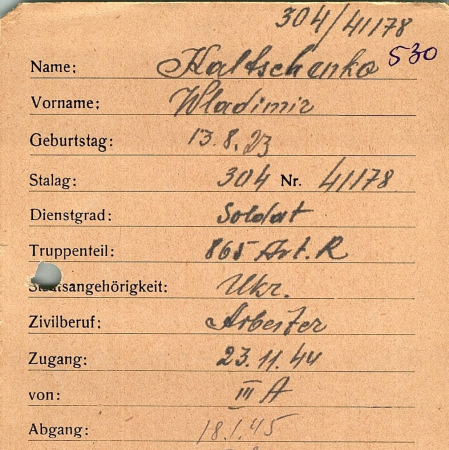 304/41178
530
Name: Kaltschenko
Vorname: Wladimir
Geburtstag: 13.8.23
Stalag: 304 Nr. 41178
Dienstgrad: Soldat
Truppenteil: 865 Art. R
Staatsangehörigkeit: Ukr.
Zivilberuf: Arbeiter
Zugang: 23.11.44
von: III A
Abgang: 18.1.45